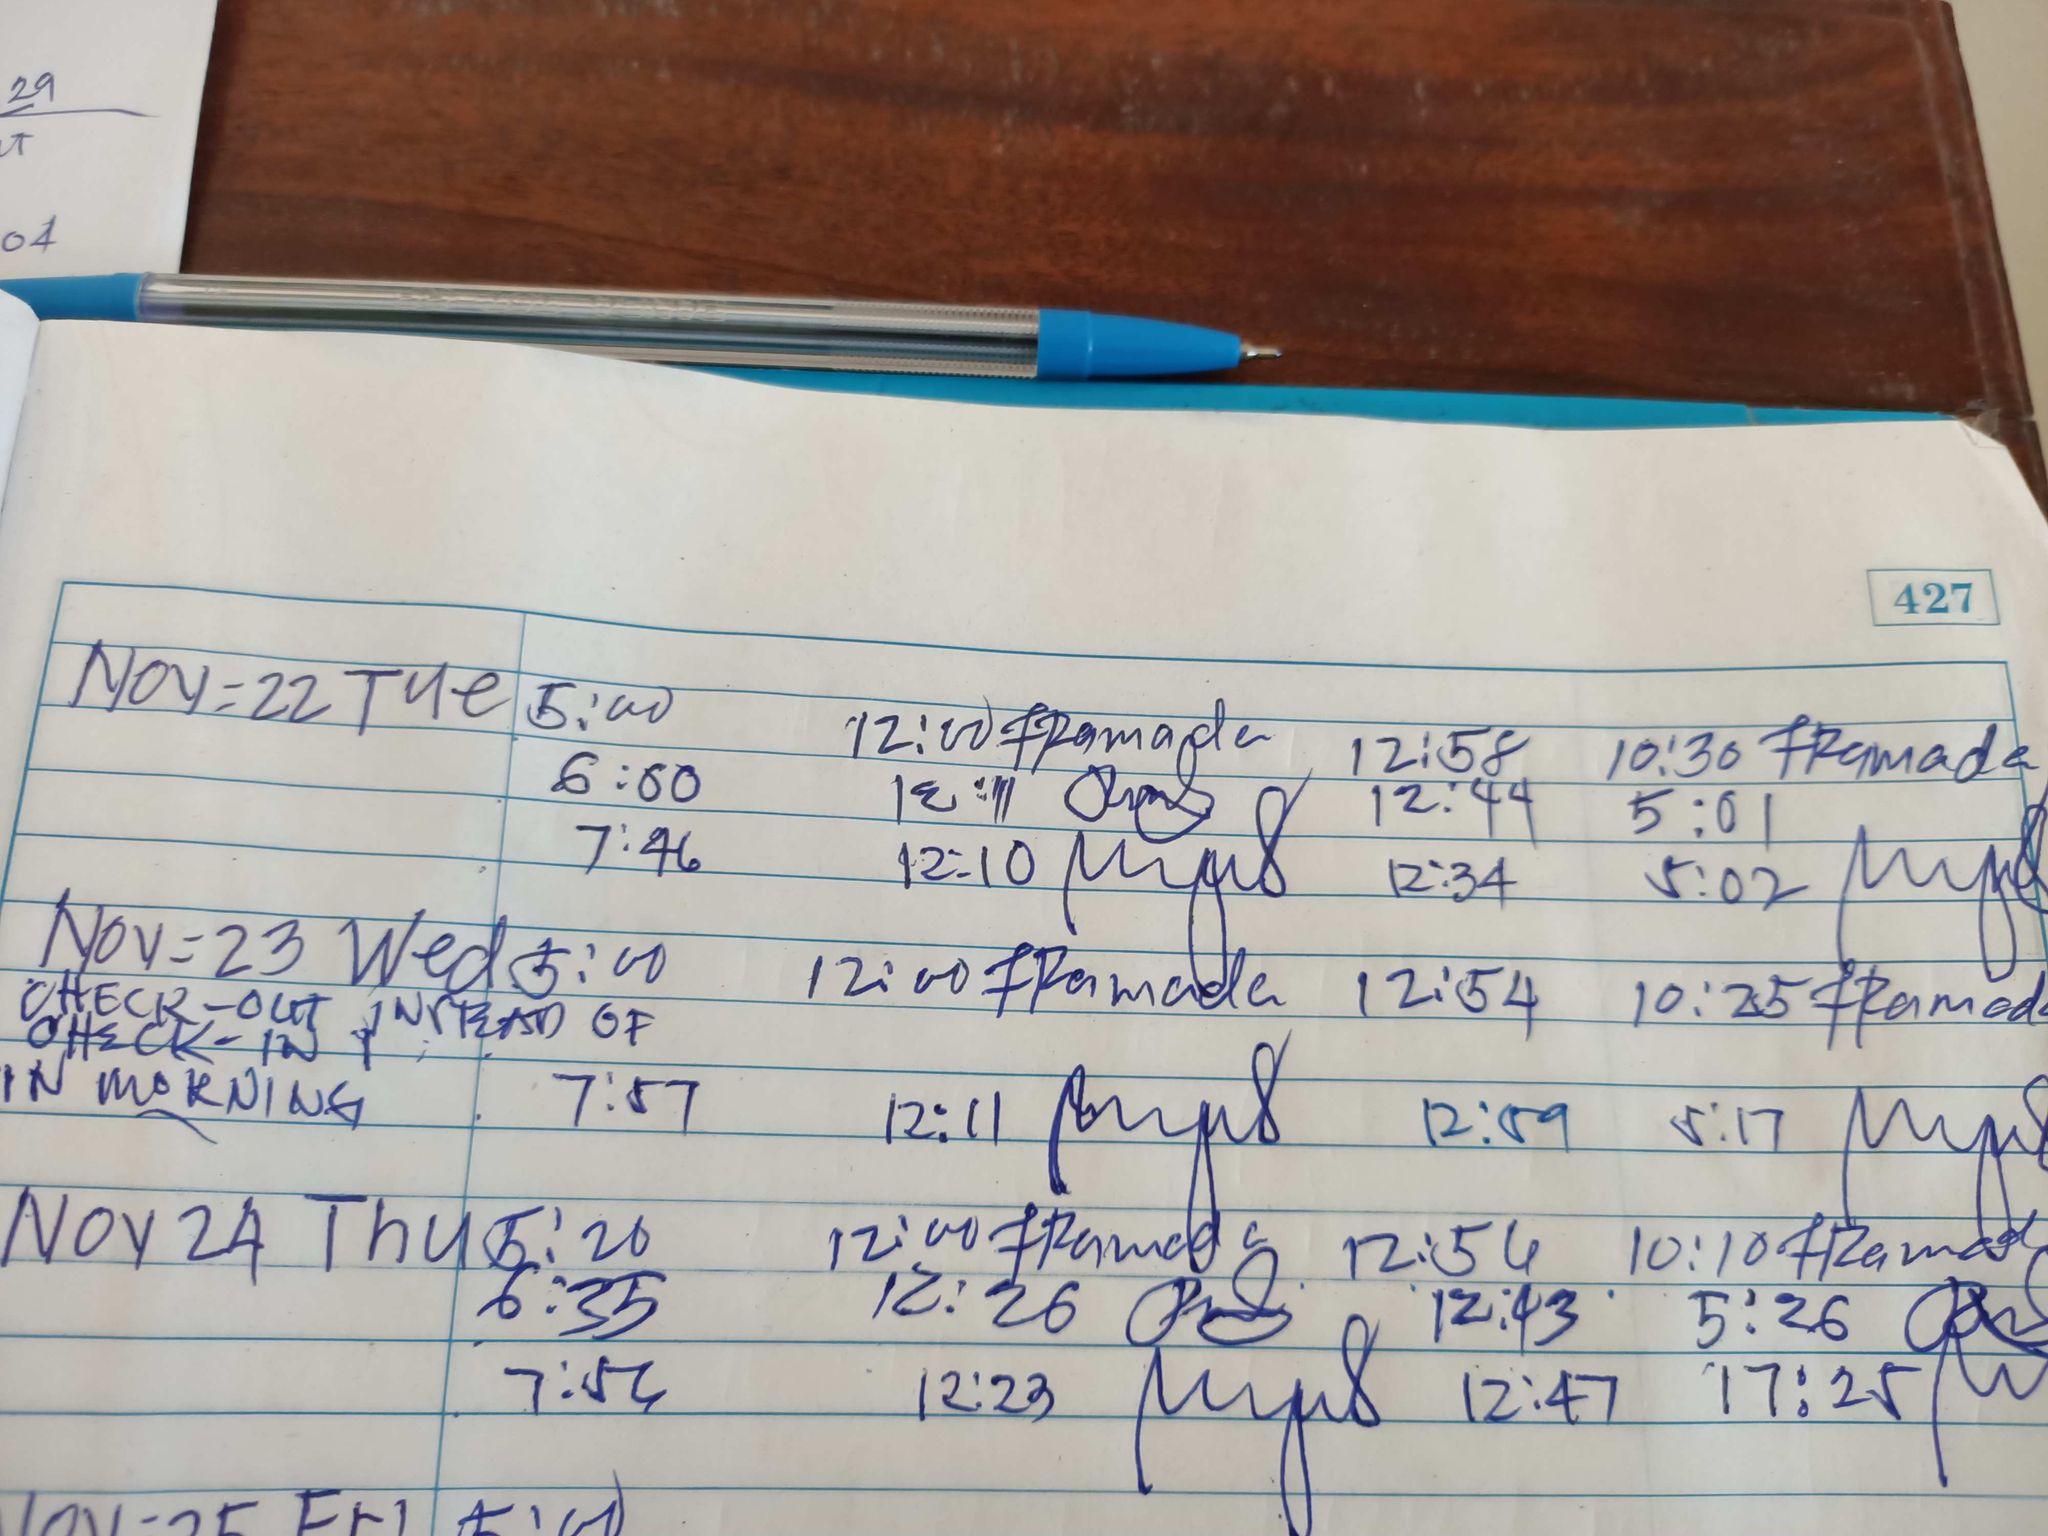 29
04
427
Nov=22 Tue 5:00 12:00 FRamada 12:58 10:30 FRamada
6:00 12:11 12:44 5:01
7:46 12:10 12:34 5:02
Nov=23 Wed 5:00 12:00 FRamada 12:54 10:25 FRamada
CHECK-OUT INSTEAD OF
CHECK-IN
IN MORNING 7:57 12:11 12:59 5:17
Nov 24 Thu 5:20 12:00 FRamada 12:56 10:10 FRamad
6:35 12:26 12:43 5:26
7:56 12:23 12:47 17:25
Nov=25 Fri 5:00